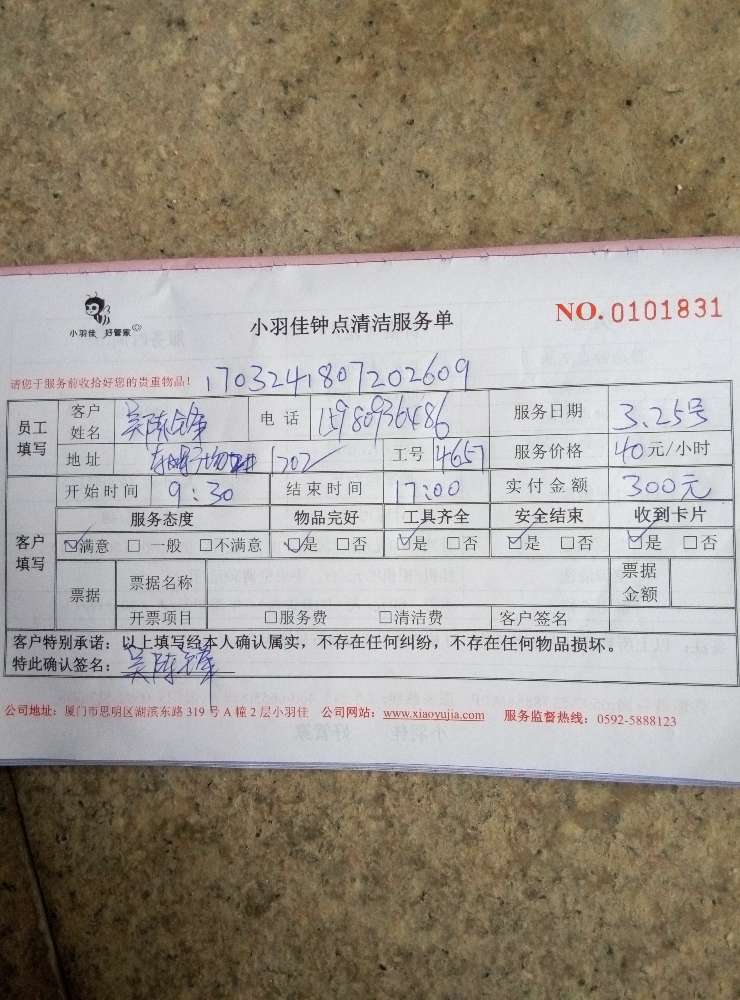 小羽佳 好管家
小羽佳钟点清洁服务单
NO. 0101831
请您于服务前收拾好您的贵重物品！ 1703241807202609
员工填写 客户姓名 吴陈 电话 服务日期 3.25号
地址 1202 工号 4657 服务价格 40元/小时
客户填写 开始时间 9:30 结束时间 17:00 实付金额 300元
服务态度 物品完好 工具齐全 安全结束 收到卡片
☑满意 □一般 □不满意 ☑是 □否 ☑是 □否 ☑是 □否 ☑是 □否
票据 票据名称 票据金额
开票项目 □服务费 □清洁费 客户签名
客户特别承诺：以上填写经本人确认属实，不存在任何纠纷，不存在任何物品损坏。
特此确认签名：吴陈
公司地址：厦门市思明区湖滨东路 319 号 A 幢 2 层小羽佳 公司网站：www.xiaoyujia.com 服务监督热线：0592-5888123